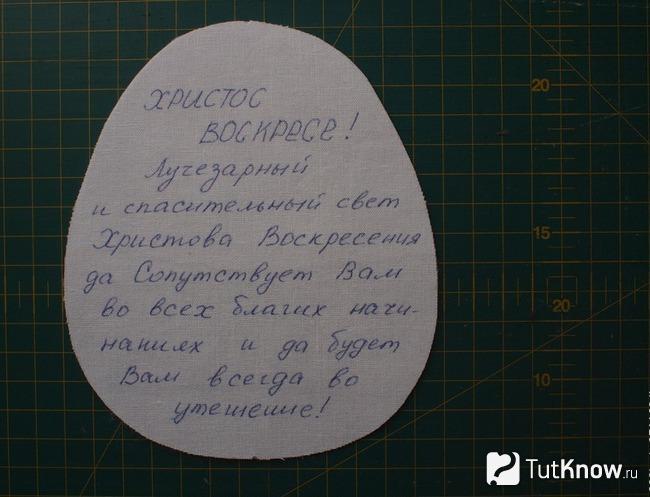 ХРИСТОС
ВОСКРЕСЕ!
Лучезарный
и спасительный свет
Христова Воскресения
да Сопутствует Вам
во всех благих начи-
наниях и да будет
Вам всегда во
утешение!
20
15
20
10
TutKnow.ru